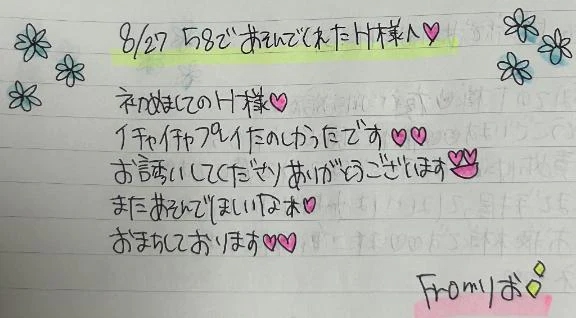 8/27 58であそんでくれたH様へ♡
初めましてのH様♡
イチャイチャプレイたのしかったです♡♡
お誘いしてくださりありがとうございます
またあそんでほしいなぁ♡
おまちしております♡♡
Fromりお